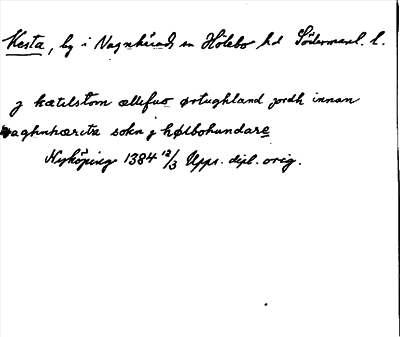 Kesta, by i Vagnhärads sn Hölebo hd Södermanl. l.
j kætilstom ællefuo ørtughland jordh innan
vaghnhæretz sokn j hølbohundare
Nyköping 1384 12/3 Upps. dipl. orig.